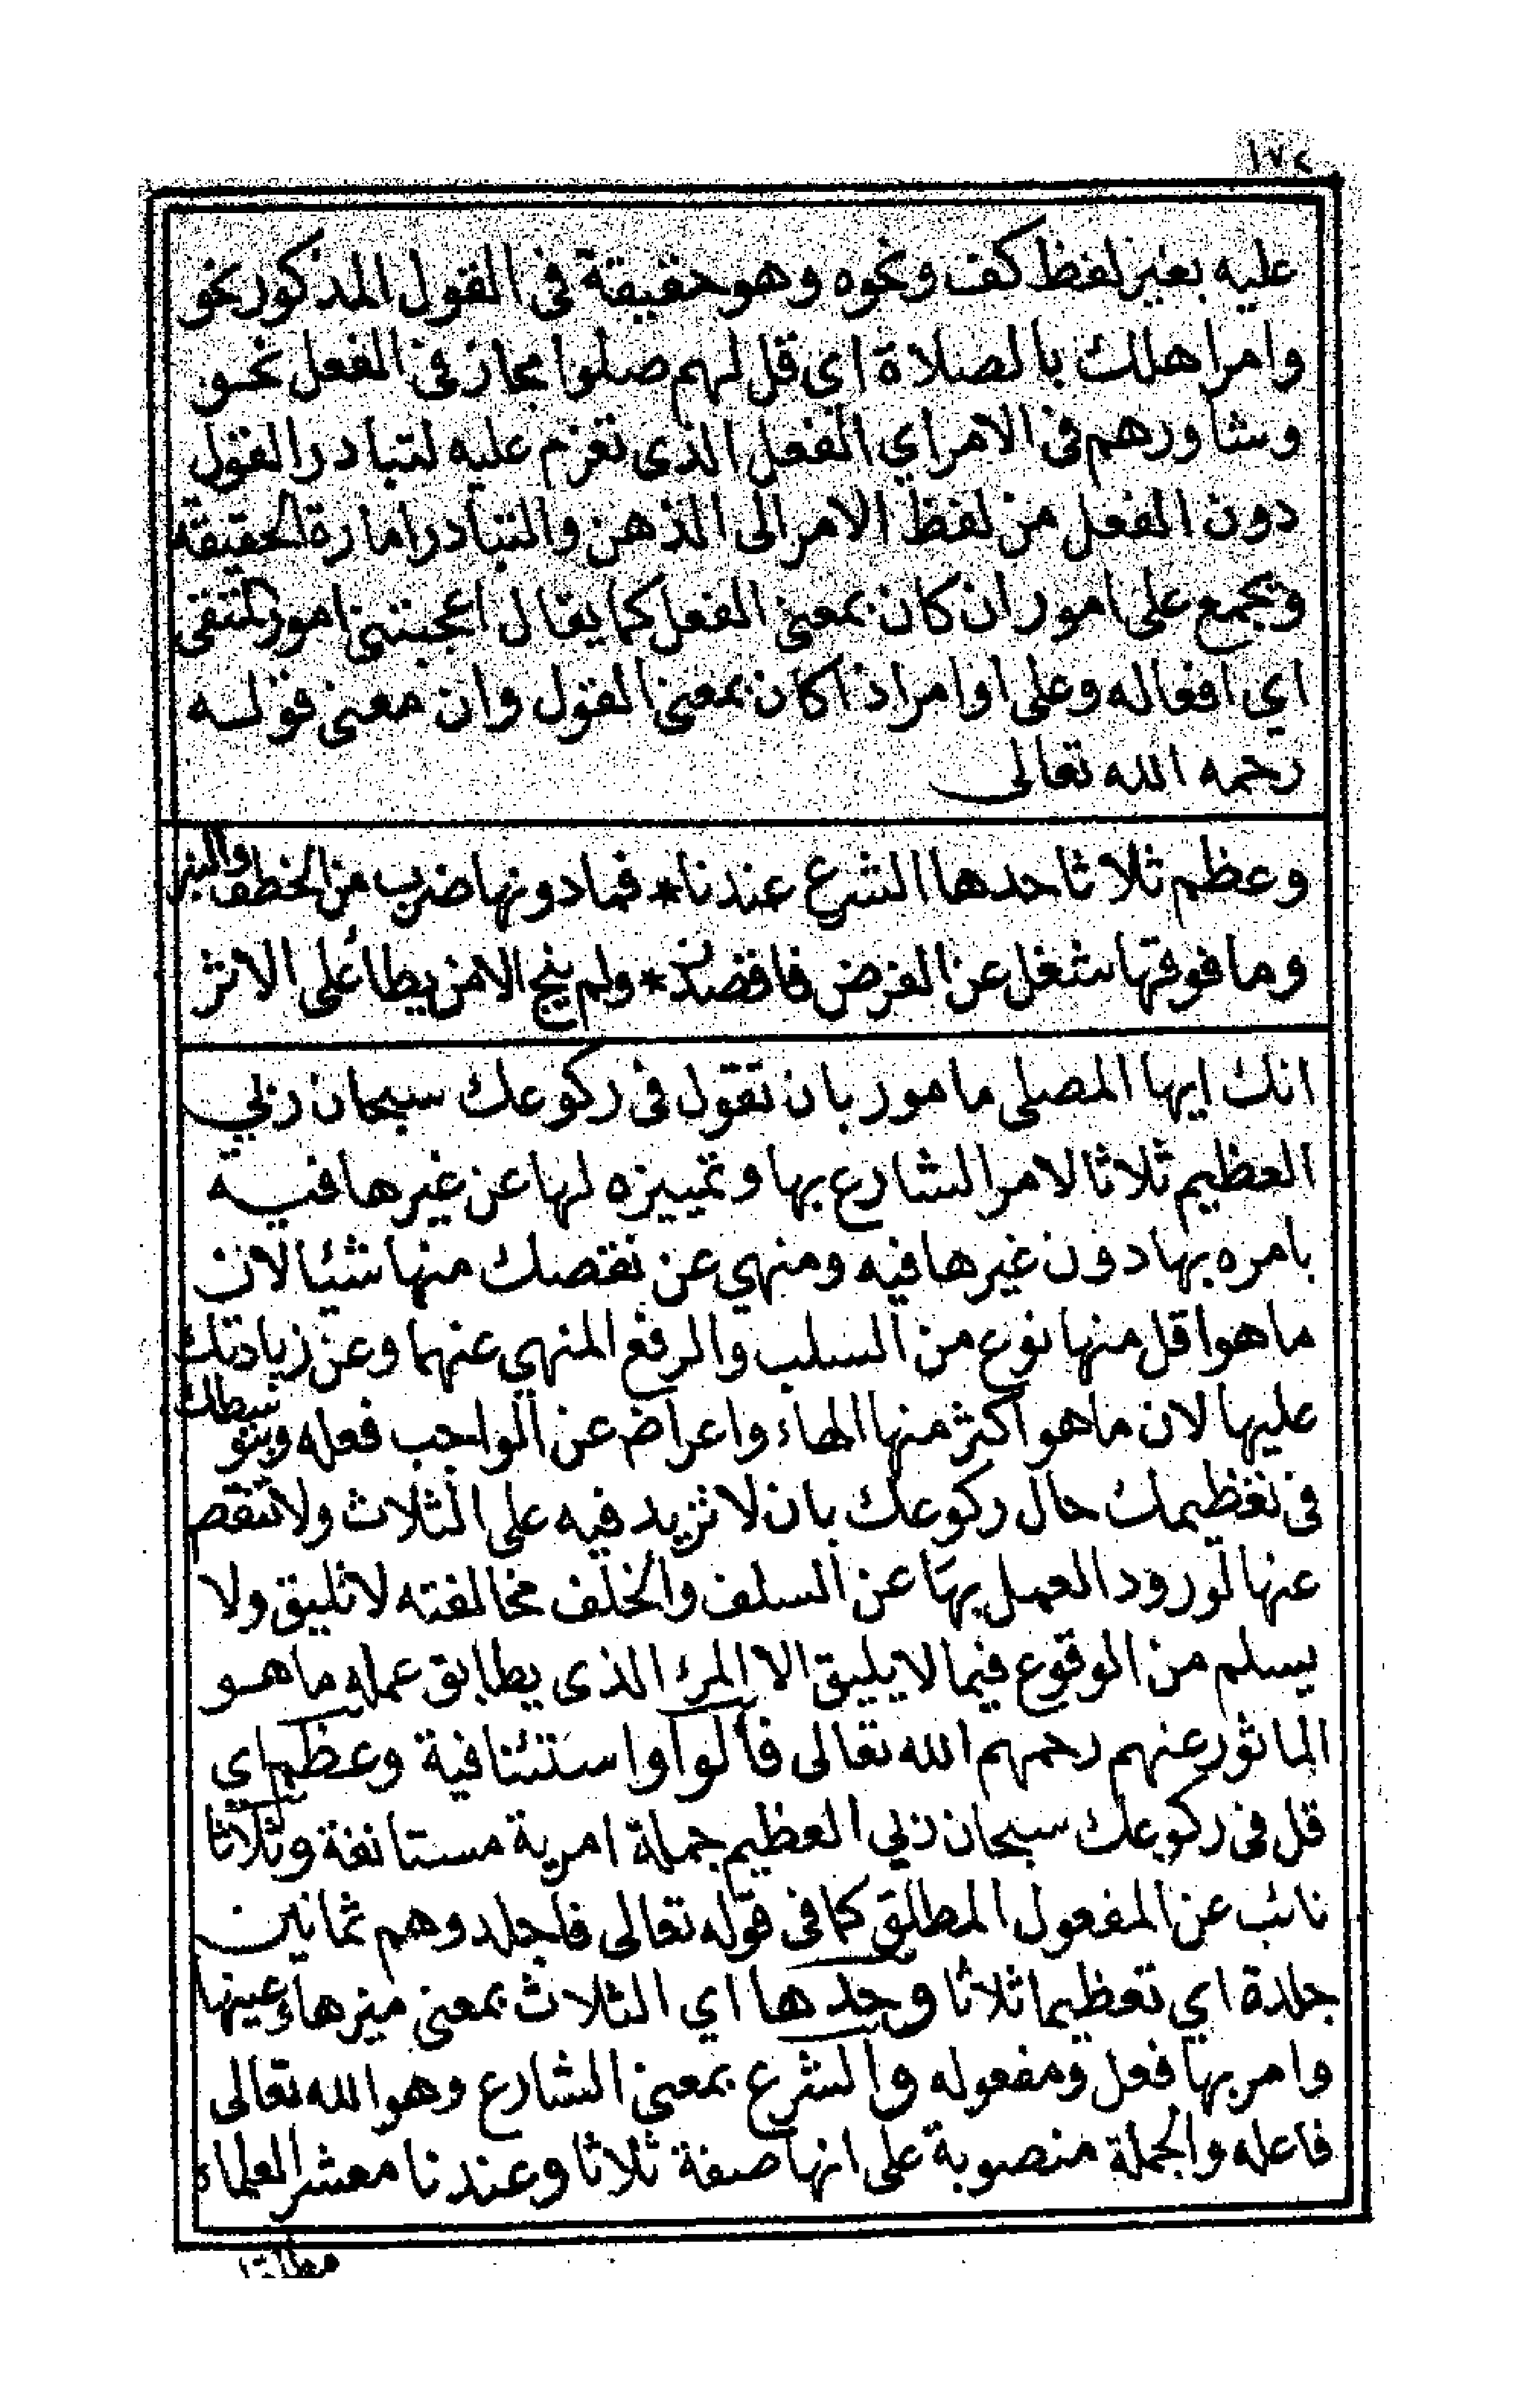 ١٧٤
عليه بغير لفظ كف ونحوه وهو حقيقة في القول المذكور نحو
وامر اهلك بالصلاة اى قل لهم صلوا مجاز في الفعل نحو
وشاورهم في الامر اي الفعل الذى تعزم عليه لتبادر القول
دون الفعل من لفظ الامر الى الذهن والتبادر امارة الحقيقة
ويجمع على امور ان كان بمعنى الفعل كما يقال اعجبتني امور المتقى
اي افعاله وعلى اوامر اذا كان بمعنى القول وان معنى قوله
رحمه الله تعالى
وعظم ثلاثا حدها الشرع عندنا * فمادونها ضرب من الخطف والبتر
وما فوقها شغل عن الفرض فاقصدن * ولم ينج الا من يطا على الاثر
انك ايها المصلى مامور بان تقول فى ركوعك سبحان ربي
العظيم ثلاثا لامر الشارع بها وتمييزه لها عن غيرها فيه
بامره بها دون غيرها فيه ومنهي عن نقصك منها شيئا لان
ما هو اقل منها نوع من السلب والرفع المنهى عنهما وعن زيادتك
عليها لان ما هو اكثر منها الهاء واعراض عن الواجب فعله وبتوسطك
فى تعظيمك حال ركوعك بان لا تزيد فيه على الثلاث ولا تنقص
عنها لورود العمل بها عن السلف والخلف مخالفته لا تليق ولا
يسلم من الوقوع فيما لا يليق الا المرء الذى يطابق عمله ما هو
الماثور عنهم رحمهم الله تعالى فالواو استئنافية وعظم اي
قل فى ركوعك سبحان ربي العظيم جملة امرية مستانفة وثلاثا
نائب عن المفعول المطلق كما فى قوله تعالى فاجلدوهم ثمانين
جلدة اي تعظيما ثلاثا وحدها اي الثلاث بمعنى ميزها وعينها
وامر بها فعل ومفعوله والشرع بمعنى الشارع وهو الله تعالى
فاعله والجملة منصوبة على انها صفة ثلاثا وعندنا معشر العلماء